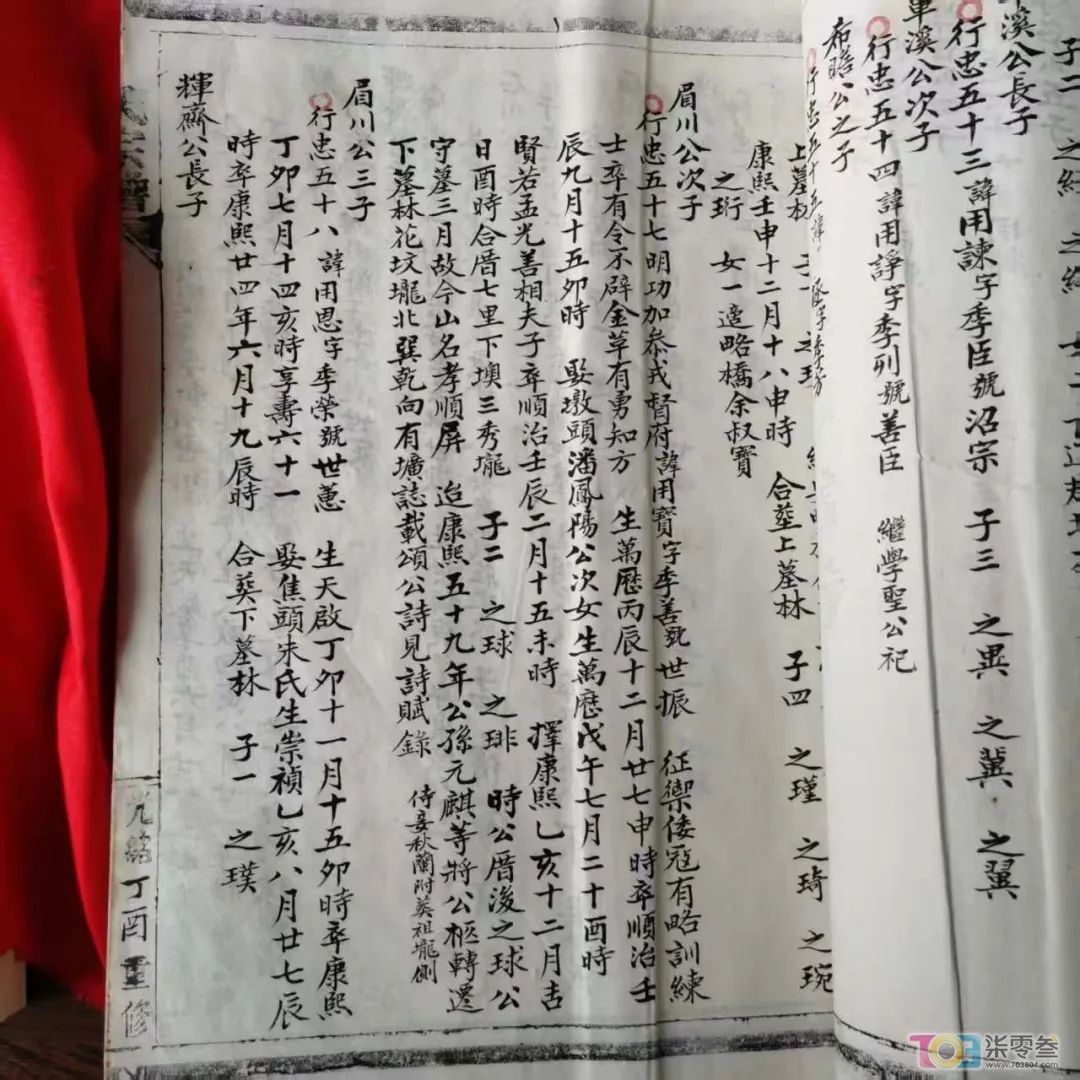 子二
溪公長子
行忠五十三諱用諫字季臣號沼宗 子三 之異 之冀 之翼
單溪公次子
行忠五十四諱用諍字季列號善臣 繼學聖公祀
希瞻公之子
行忠五十五諱
上墓林 子一
康熙壬申十二月十八申時 合塟上墓林 子四 之瑾 之琦 之琬
之珩 女一適略橋余叔寶
眉川公次子
行忠五十七明功加叅戎督府諱用寶字季善號世振 征禦倭寇有略訓練
士卒有令不辟金草有勇知方 生萬厯丙辰十二月廿七申時卒順治壬
辰九月十五卯時 娶墩頭潘鳳陽公次女生萬厯戊午七月二十酉時
賢若孟光善相夫子卒順治壬辰二月十五未時 擇康熙乙亥十二月吉
日酉時合厝七里下墺三秀壠 子二 之球 之琲 時公厝後之球公
守墓三月故今山名孝順屏 迨康熙五十九年公孫元麒等將公柩轉遷
下墓林花坟壠北巽乾向有壙誌載頌公詩見詩賦錄 侍妾秋蘭附葬祖壠側
眉川公三子
行忠五十八諱用恩字季榮號世蕙 生天啟丁卯十一月十五卯時卒康熙
丁卯七月十四亥時享壽六十一 娶焦頭朱氏生崇禎乙亥八月廿七辰
時卒康熙廿四年六月十九辰時 合葬下墓林 子一 之璞
輝齋公長子
光緒丁酉重修
703 柒零叁
www.703804.com